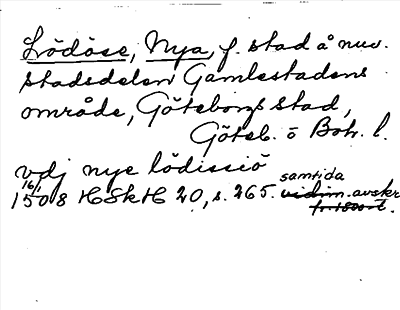 Lödöse, Nya, f. stad å nuv.
stadsdelen Gamlestadens
område, Göteborgs stad,
Göteb. o Boh. l.
vdj nye lödissiö
samtida
1508 16/1 HSkH 20, s. 265. vidim. avskr
fr. 1800-t.